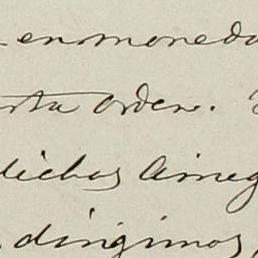 en moneda
rta orden.
dichos Aineg
dirigimos,